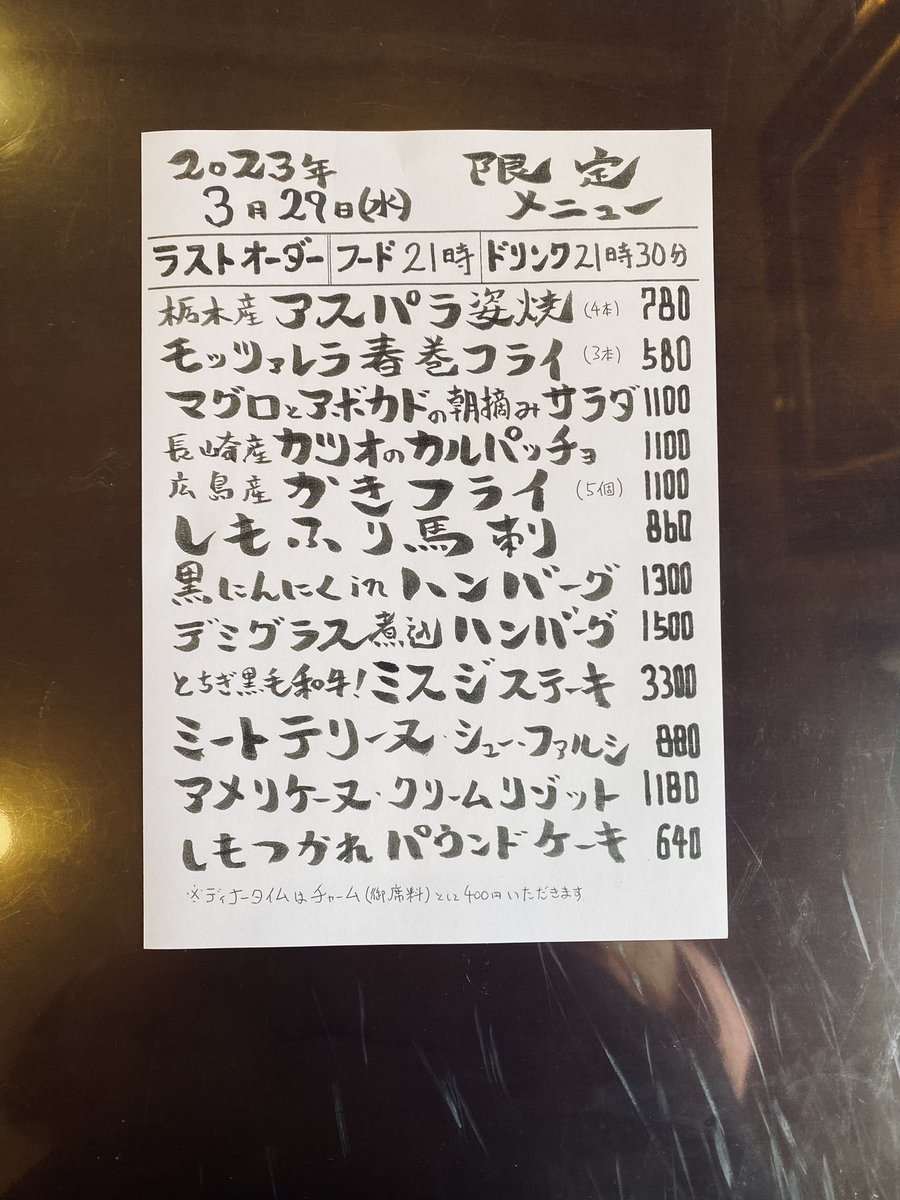 2023年 限定
3月29日(水) メニュー
ラストオーダー フード21時 ドリンク21時30分
栃木産 アスパラ姿焼 (4本) 780
モッツァレラ春巻フライ (3本) 580
マグロとアボカドの朝摘みサラダ 1100
長崎産 カツオのカルパッチョ 1100
広島産 かきフライ (5個) 1100
しもふり馬刺 860
黒にんにくinハンバーグ 1300
デミグラス煮込ハンバーグ 1500
とちぎ黒毛和牛!ミスジステーキ 3300
ミートテリーヌ・シュー・ファルシ 880
アメリケーヌ・クリームリゾット 1180
しもつかれパウンドケーキ 640
※ディナータイムはチャーム(御席料)として400円いただきます